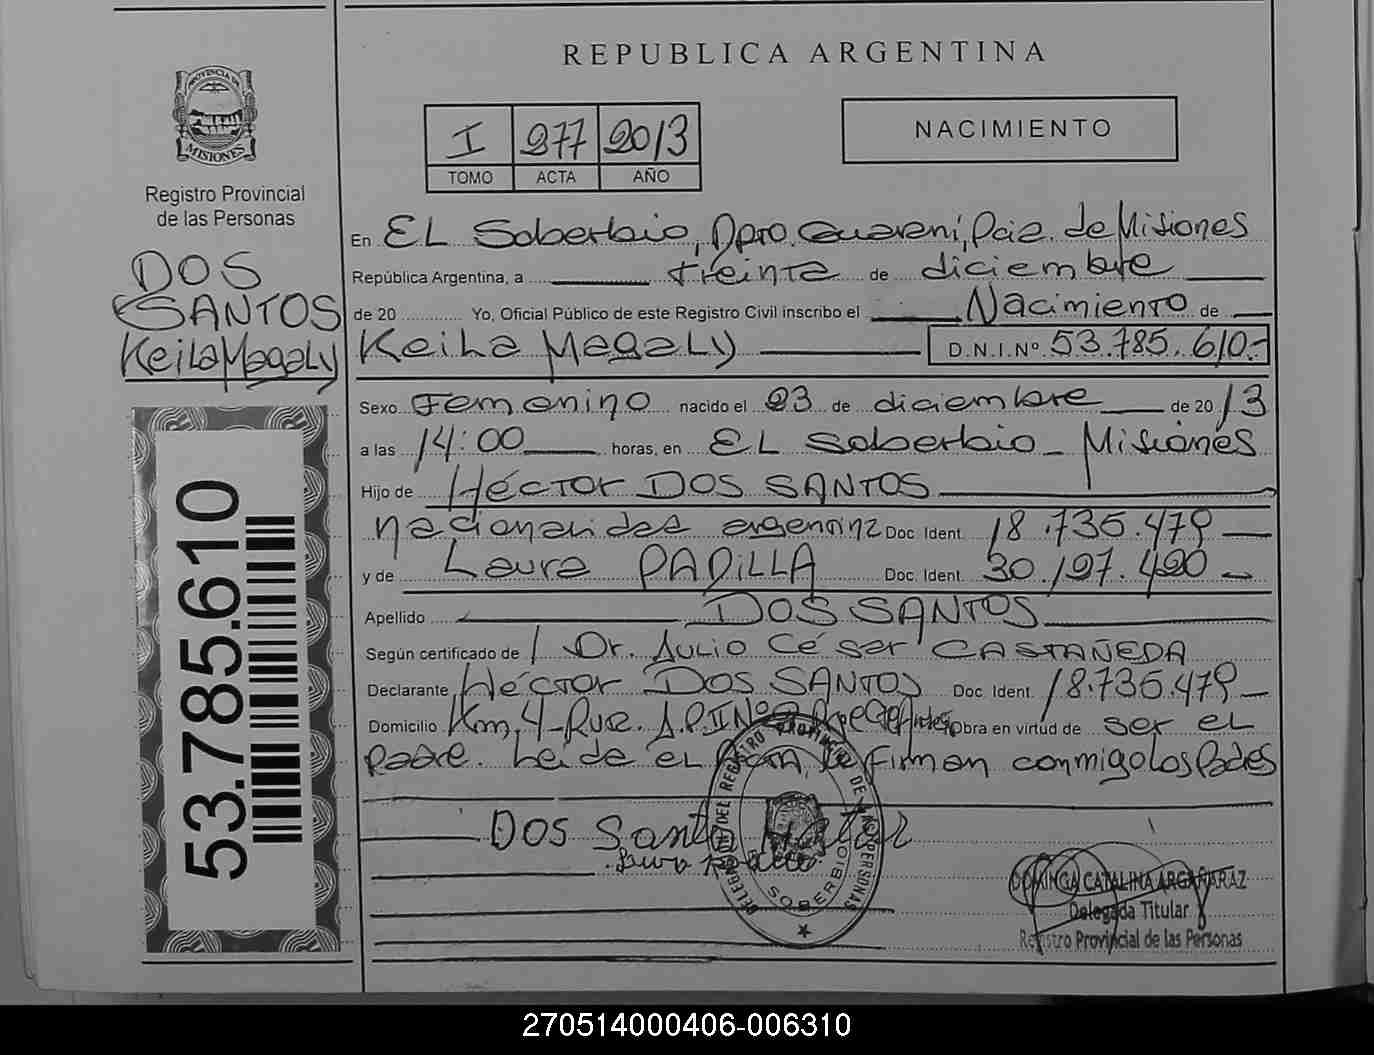 REPUBLICA ARGENTINA
PROVINCIA DE
MISIONES
Registro Provincial
de las Personas
I 277 2013
TOMO ACTA AÑO
NACIMIENTO
DOS
SANTOS
Keila Magaly
53.785.610
En EL Soberbio, Dpto. Guaraní, Pcia. de Misiones
República Argentina, a treinta de diciembre
de 20 Yo, Oficial Público de este Registro Civil inscribo el Nacimiento de
Keila Magaly D.N.I.Nº 53.785.610.-
Sexo Femenino nacido el 23 de diciembre de 2013
a las 14:00 horas, en EL Soberbio - Misiones
Hijo de Héctor DOS SANTOS
nacionalidad argentina Doc. Ident. 18.735.479
y de Laura PADILLA Doc. Ident. 30.197.490
Apellido DOS SANTOS
Según certificado de Dr. Julio César CASTAÑEDA
Declarante Héctor DOS SANTOS Doc. Ident. 18.735.479
Domicilio Km. 4- Ruta Obra en virtud de ser el
padre. Leida el Acta, la firman conmigo los Padres
DOS Santos Hector
DELEGACION DEL REGISTRO PROVINCIAL DE LAS PERSONAS
SOBERBIO
DOMINGA CATALINA ARGAÑARAZ
Delegada Titular
Registro Provincial de las Personas
270514000406-006310